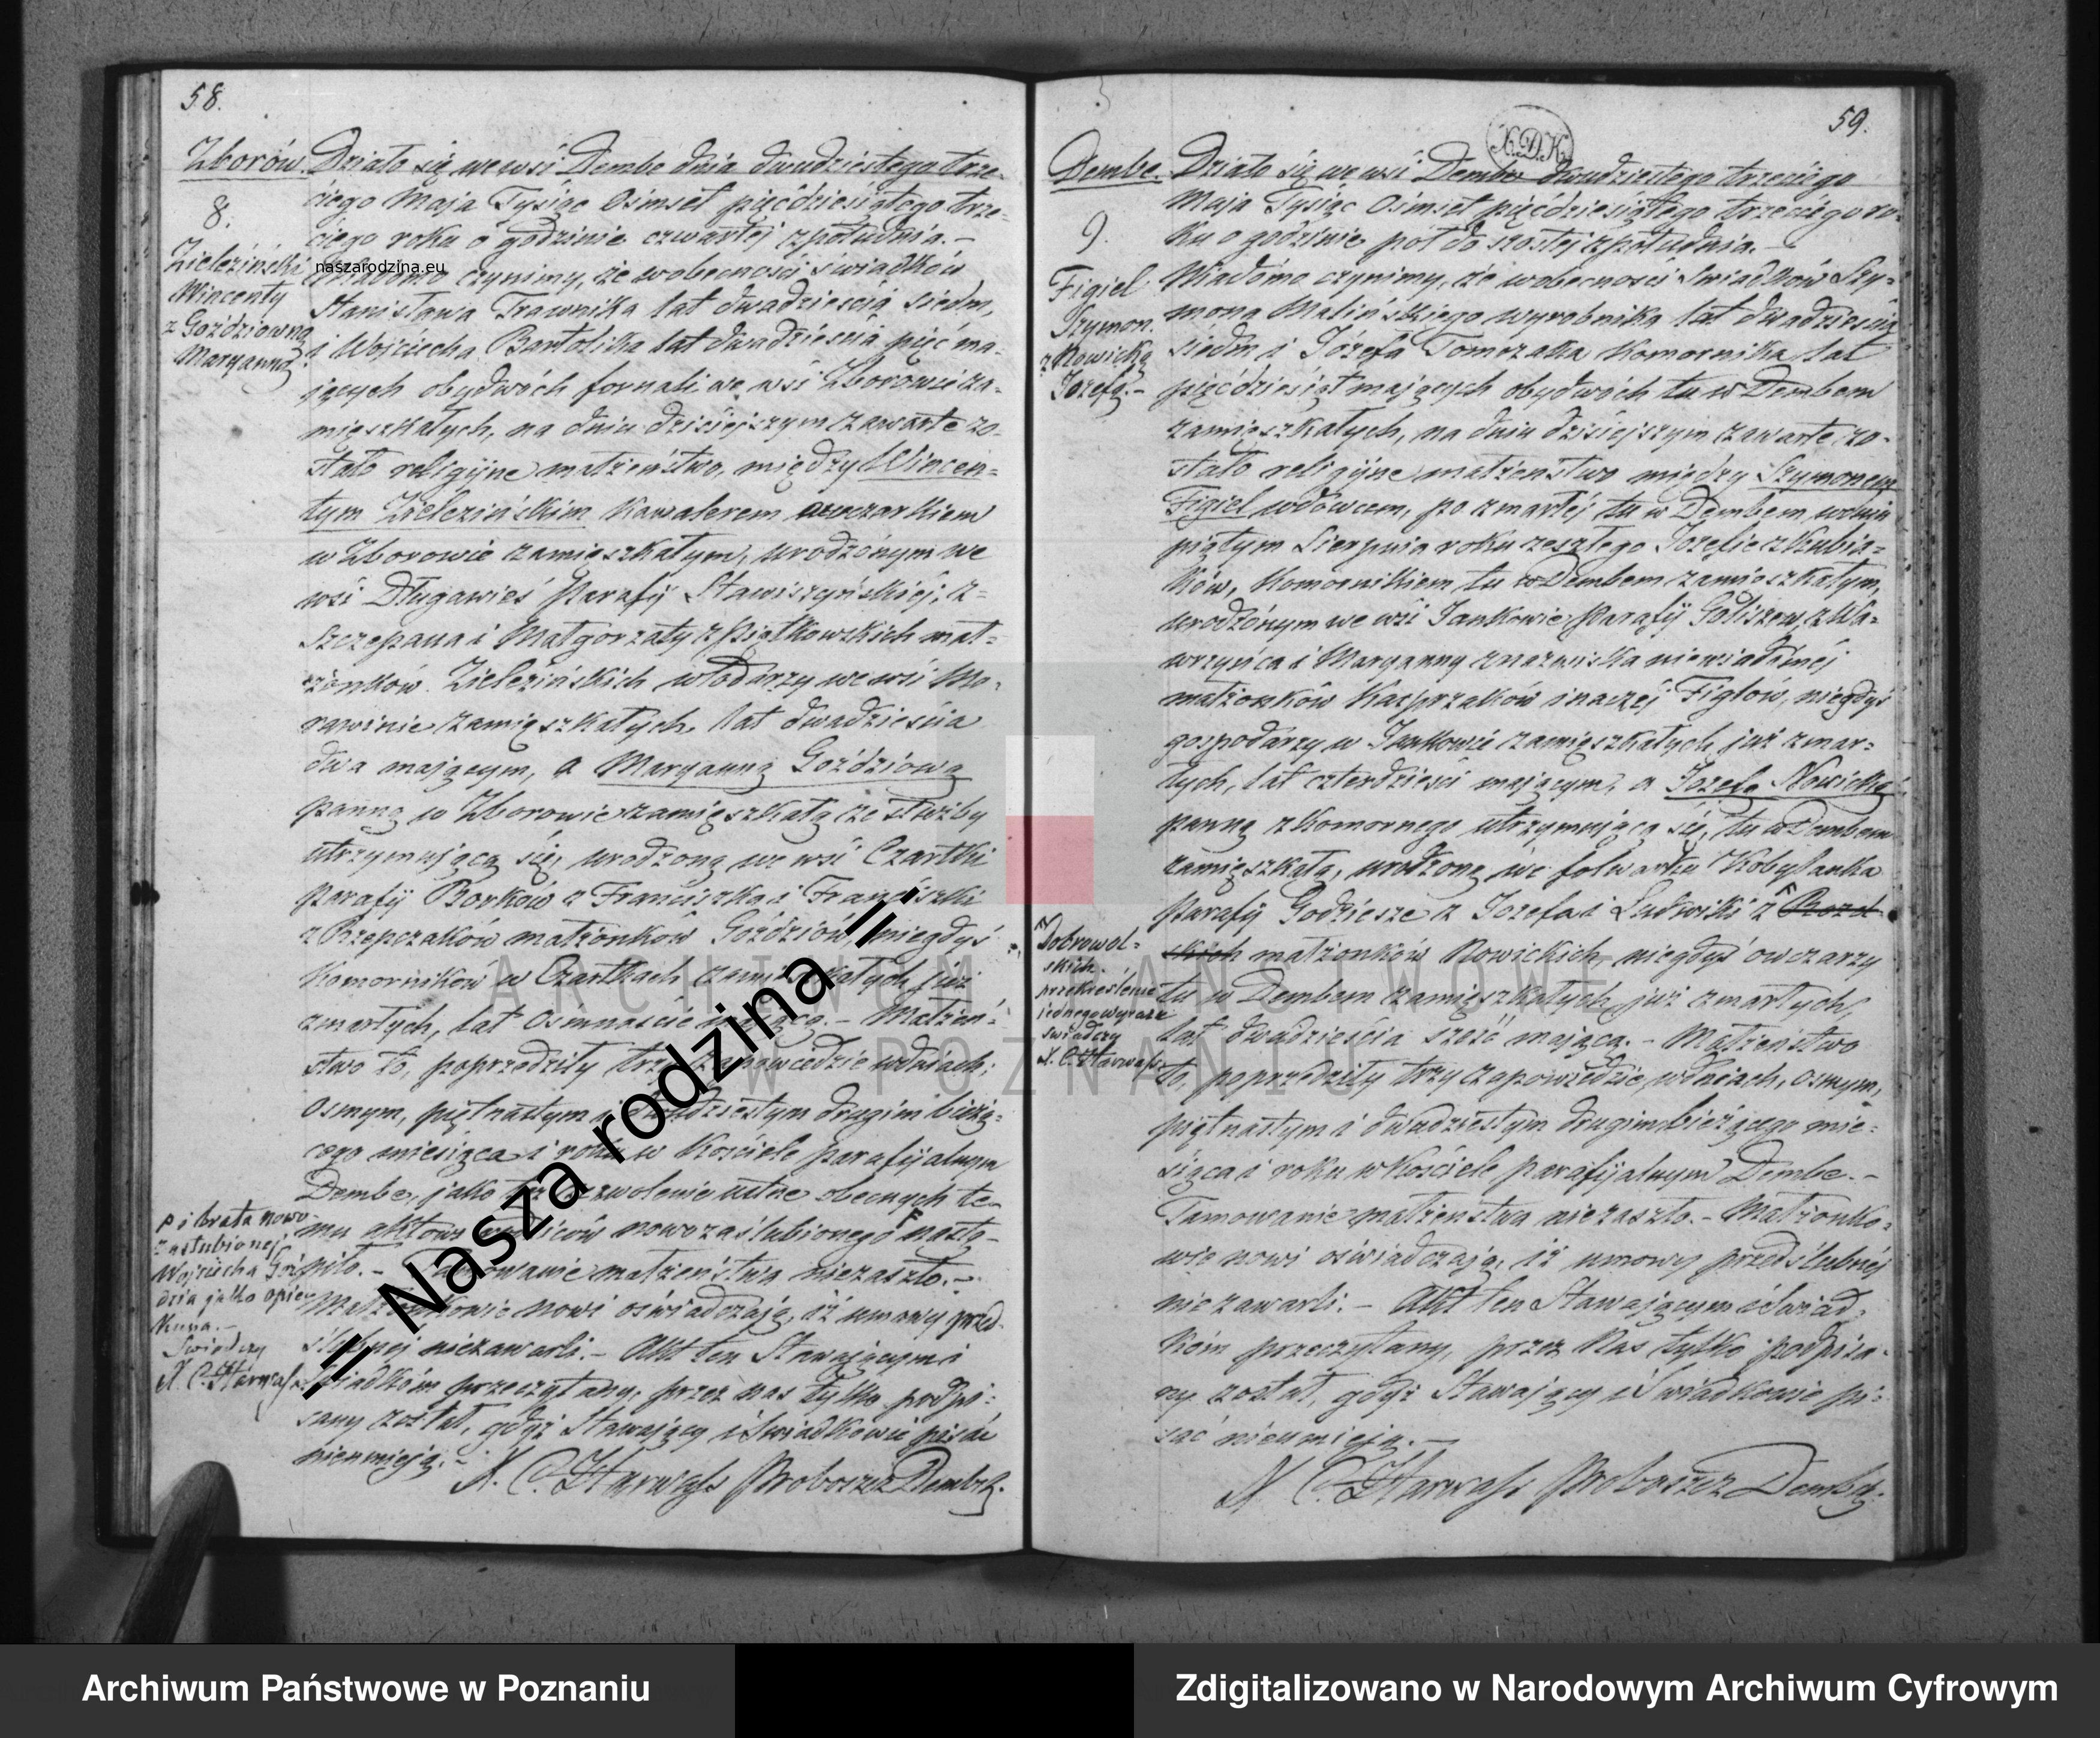 58.
Zborów.
8.
Zieleziński
Wincenty
z Goździowną
Maryanną
Działo się we wsi Dembe dnia dwudziestego trze-
ciego Maja Tysiąc Ośmset pięćdziesiątego trze-
ciego roku o godzinie czwartej z południa.-
naszarodzina.eu
Wiadomo czynimy, że w obecności świadków
Stanisława Trawnika lat dwadzieścia siedm,
i Wojciecha Bartolika lat dwadzieścia pięć ma-
jących obydwóch fornali we wsi Zborowie za-
mięszkałych, na dniu dzisiejszym zawarte zo-
stało religijne małżeństwo, między Wincen-
tym Zielezińskim Kawalerem owczarkiem
w Zborowie zamięszkałym, urodzonym we
wsi Długawieś Parafij Stawiszyńskiéj, z
Szczepana i Małgorzaty z Piątkowskich mał-
żonków Zielezińskich włodarzy we wsi Mo-
rawinie zamięszkałych, lat dwadzieścia
dwa mającym, a Maryanną Goździową
panną w Zborowie zamięszkałą ze służby
utrzymującą się, urodzoną we wsi Czartki
Parafij Borków z Franciszka i Franciszki
z Rzepczaków małżonków Goździów, niegdyś
Komorników w Czartkach zamięszkałych już
zmarłych, lat ośmnaście mającą.- Małżeń-
stwo to, poprzedziły trzy zapowiedzie w dniach:
ósmym, piętnastym i dwudziestym drugim bieżą-
cego miesiąca i roku w Kościele parafijalnym
Dembe, jako też zezwolenie ustne obecnych te-
mu aktowi rodziców nowozaślubionego nastą-
piło.- Tamowanie małżeństwa niezaszło.-
Małżonkowie nowi oświadczają, iż umowy przed-
ślubnej niezawarli.- Akt ten Stawającym i
Świadkóm przeczytany, przez nas tylko podpi-
sany został, gdyż Stawający i Świadkowie pisać
nieumieją.-
X. C. Harwass Proboszcz Dembsk.
i brata nowo-
zaślubionej
Wojciecha Goź-
dzia jako opie-
kuna.-
Świadczy
X. C. Harwass
|| Nasza rodzina ||
59.
X.D.K.
Dembe.
9.
Figiel
Szymon.
z Nowicką
Józefą.-
Działo się we wsi Dembe dwudziestego trzeciégo
Maja Tysiąc Ośmset pięćdziesiątego trzeciégo ro-
ku o godzinie pół do szóstej z południa.-
Wiadomo czynimy, że w obecności Świadków Szy-
mona Malińskiego wyrobnika lat dwadzieścia
siedm i Józefa Tomczaka Komornika lat
pięćdziesiąt mających obydwóch tu w Dembem
zamięszkałych, na dniu dzisiejszym zawarte zo-
stało religijne małżeństwo między Szymonem
Figiel wdówcem, po zmarłéj tu w Dembem w dniu
piątym Sierpnia roku zeszłego Józefie z Kubia-
ków, Komornikiem tu w Dembem zamięszkałym,
urodzonym we wsi Jankowie Parafij Goliszew, z Wa-
wrzyńca i Maryanny z nazwiska niewiadoméj
małżonków Kasprzaków inaczéj Figlów, niegdyś
gospodarzy w Jankowie zamięszkałych już zmar-
łych, lat czterdzieści mającym, a Józefą Nowicką
panną z komornego utrzymującą się, tu w Dembem
zamięszkałą, urodzoną we folwarku Kobylanka
Parafij Godziesze z Józefa i Ludwiki z
małżonków Nowickich, niegdyś owczarzy
tu w Dembem zamięszkałych, już zmarłych,
lat dwadzieścia sześć mającą.- Małżeństwo
to, poprzedziły trzy zapowiedzie, w dniach, ósmym,
piętnastym i dwudziestym drugim bieżącego mie-
siąca i roku w Kościele parafijalnym Dembe.-
Tamowanie małżeństwa niezaszło.- Małżonko-
wie nowi oświadczają, iż umowy przedślubnéj
niezawarli.- Akt ten Stawającym i Świad-
kóm przeczytany, przez Nas tylko podpisa-
ny został, gdyż Stawający i Świadkowie pi-
sać nieumieją.-
X C. Harwass Proboszcz Dembsk.
Dobrowol-
skich.
przekreślenie
jednego wyrazu
świadczy
X. C. Harwass
ARCHIWUM PAŃSTWOWE
W POZNANIU
Archiwum Państwowe w Poznaniu
Zdigitalizowano w Narodowym Archiwum Cyfrowym